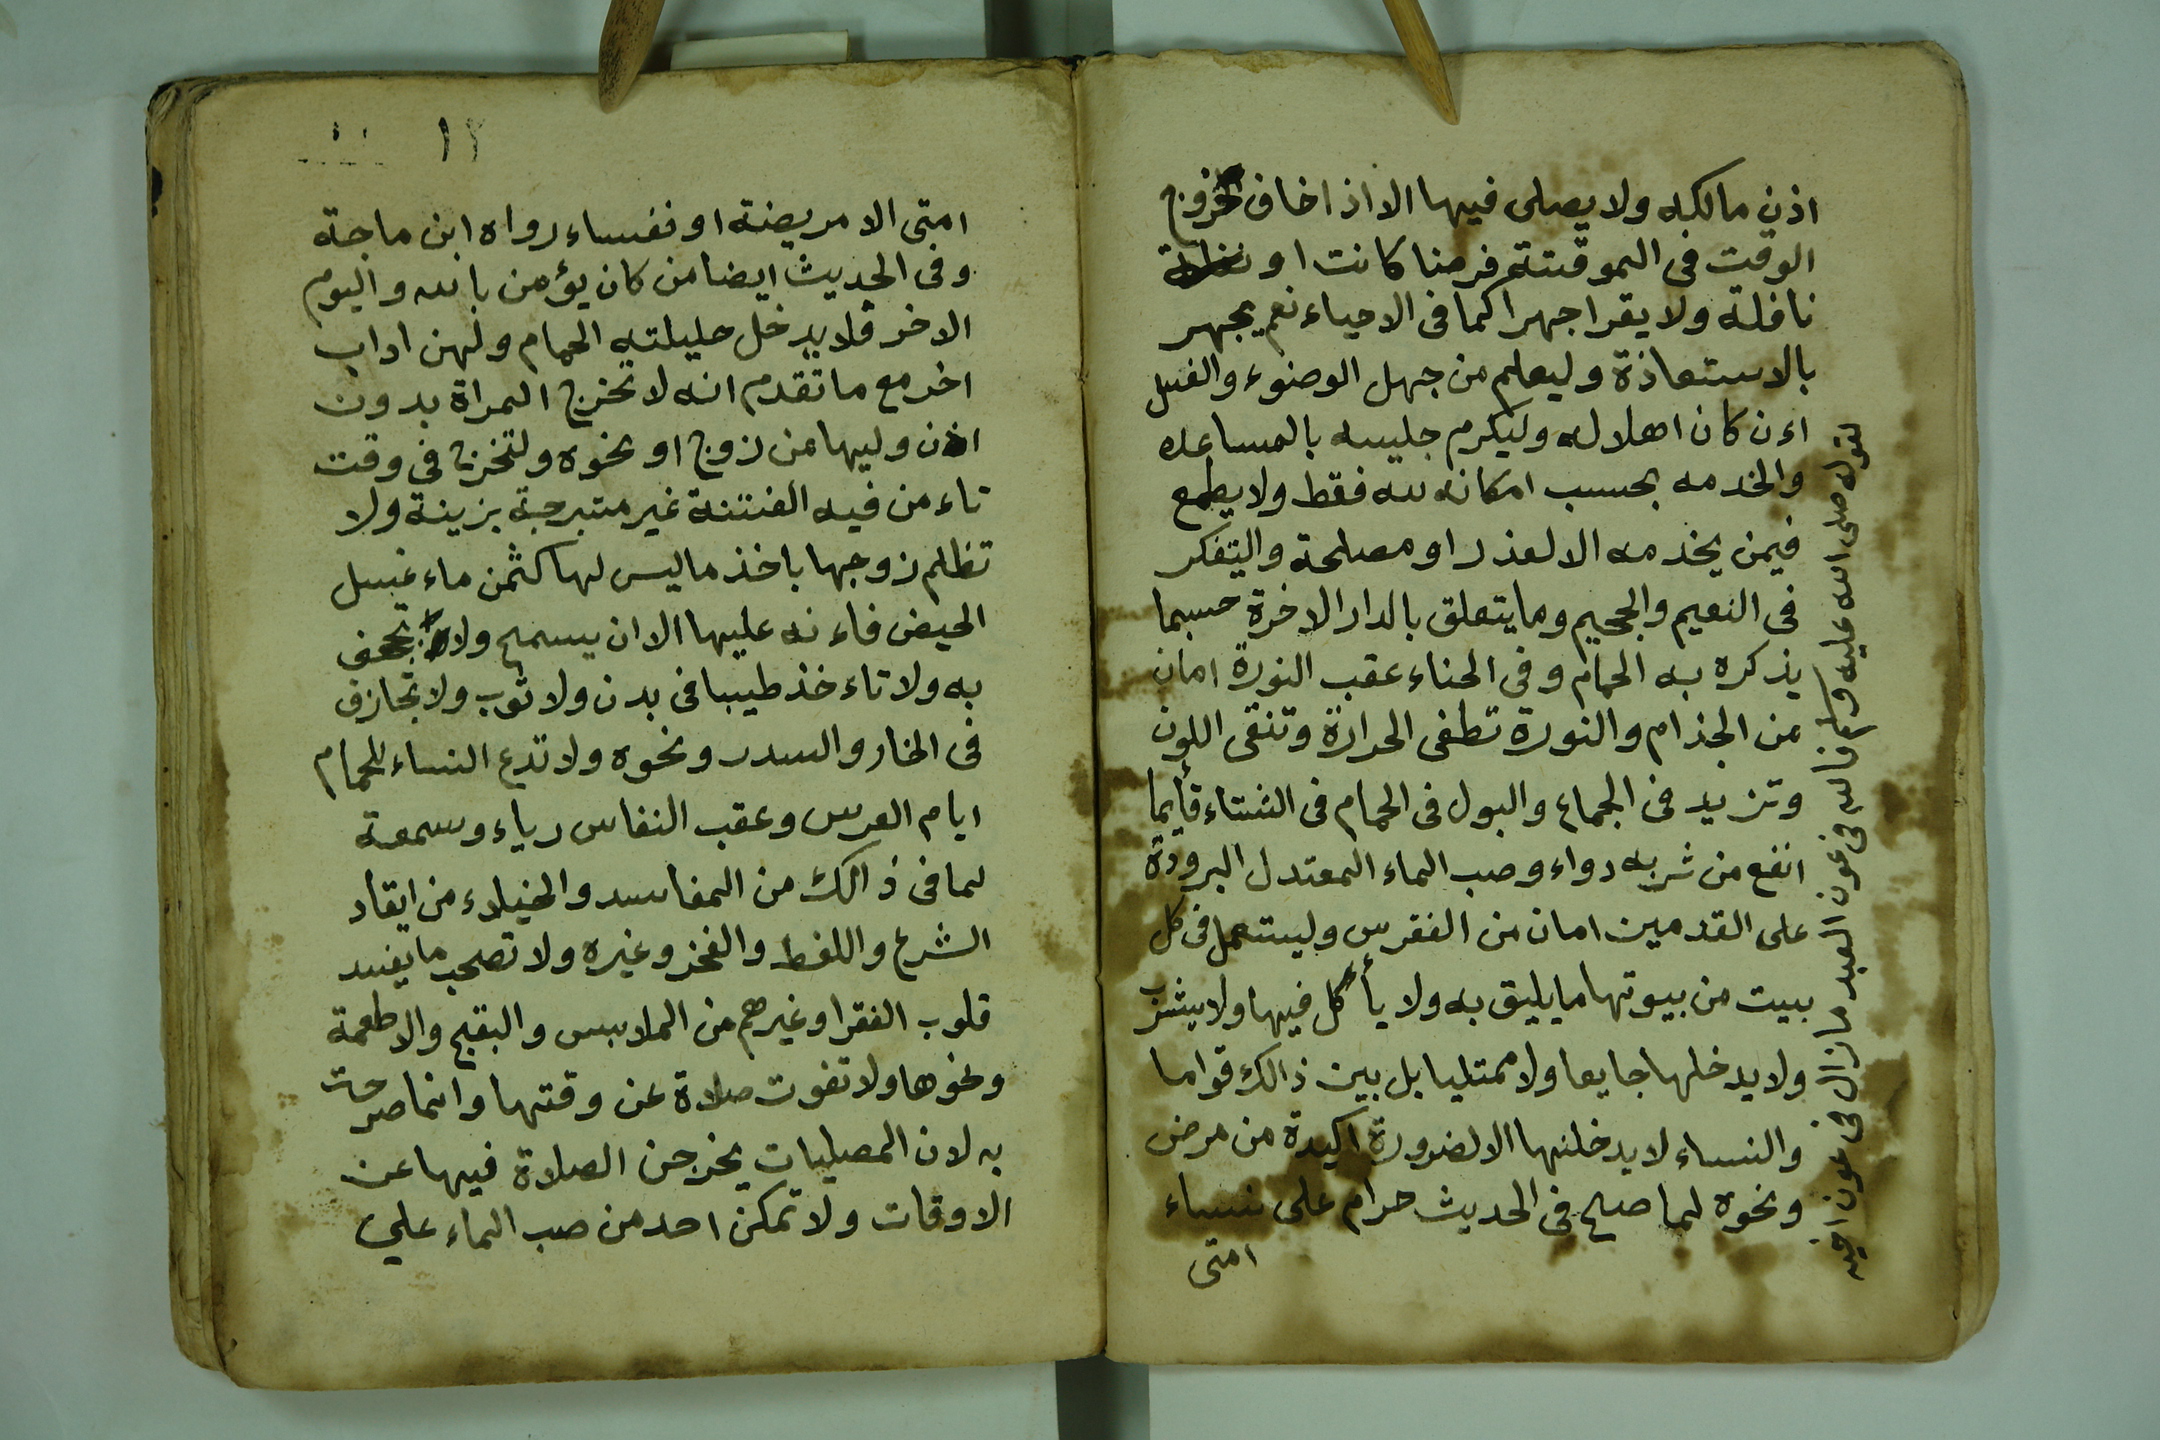 اذن مالكه ولا يصلى فيها الا اذا خاف خروج
الوقت فى الموقتة فرضا كانت او
نافلة ولا يقرا جهرا كما فى الاحياء نعم يجهر
بالاستعاذة وليعلم من جهل الوضوء والغسل
اءن كان اهلا له وليكرم جليسه بالمساعده
والخدمه بحسب امكانه لله فقط ولا يطمع
فيمن يخدمه الا لعذر او مصلحة واليتفكر
فى النعيم والجحيم وما يتعلق بالدار الاخرة حسبما
يذكره به الحمام وفى الحناء عقب النورة امان
من الجذام والنورة تطفى الحرارة وتنقى اللون
وتزيد فى الجماع والبول فى الحمام فى الشتاء قأيما
انفع من شربه دواء وصب الماء المعتدل البرودة
على القدمين امان من النقرس وليستعمل فى كل
بيت من بيوتها ما يليق به ولا يأكل فيها ولا يشرب
ولا يدخلها جايعا ولا ممتليا بل بين ذالك قواما
والنساء لا يدخلنها الا لضرورة اكيدة من مرض
ونحوه لما صح فى الحديث حرام على نساء
امتى
لقوله صلى الله عليه وسلم فالله فى عون العبد ما زال فى عون اخيه
١٢
امتى الا مريضة او نفساء رواه ابن ماجة
وفى الحديث ايضا من كان يؤمن بالله واليوم
الاخر فلا يدخل حليلته الحمام ولهن اداب
اخر مع ما تقدم انه لا تخرج المراة بدون
اذن وليها من زوج او نحوه ولتخرج فى وقت
تاءمن فيه الفتنة غير متبرجة بزينة ولا
تظلم زوجها باخذ ما ليس لها كثمن ماء غسل
الحيض فاءنه عليها الا ان يسمح ولا تجحف
به ولا تاءخذ طيبا فى بدن ولا ثوب ولا تجازف
فى الخار والسدر ونحوه ولا تدع النساء للحمام
ايام العرس وعقب النفاس رياء وسمعة
لما فى ذالك من المفاسد والخيلاء من ايقاد
الشرع واللغط والفخر وغيره ولا تصحب ما يفسد
قلوب الفقرا وغيرهم من الملابس والبقج والاطعمة
ونحوها ولا تفوت صلاة عن وقتها وانما صرحت
به لان المصليات يخرجن الصلاة فيها عن
الاوقات ولا تمكن احد من صب الماء علي